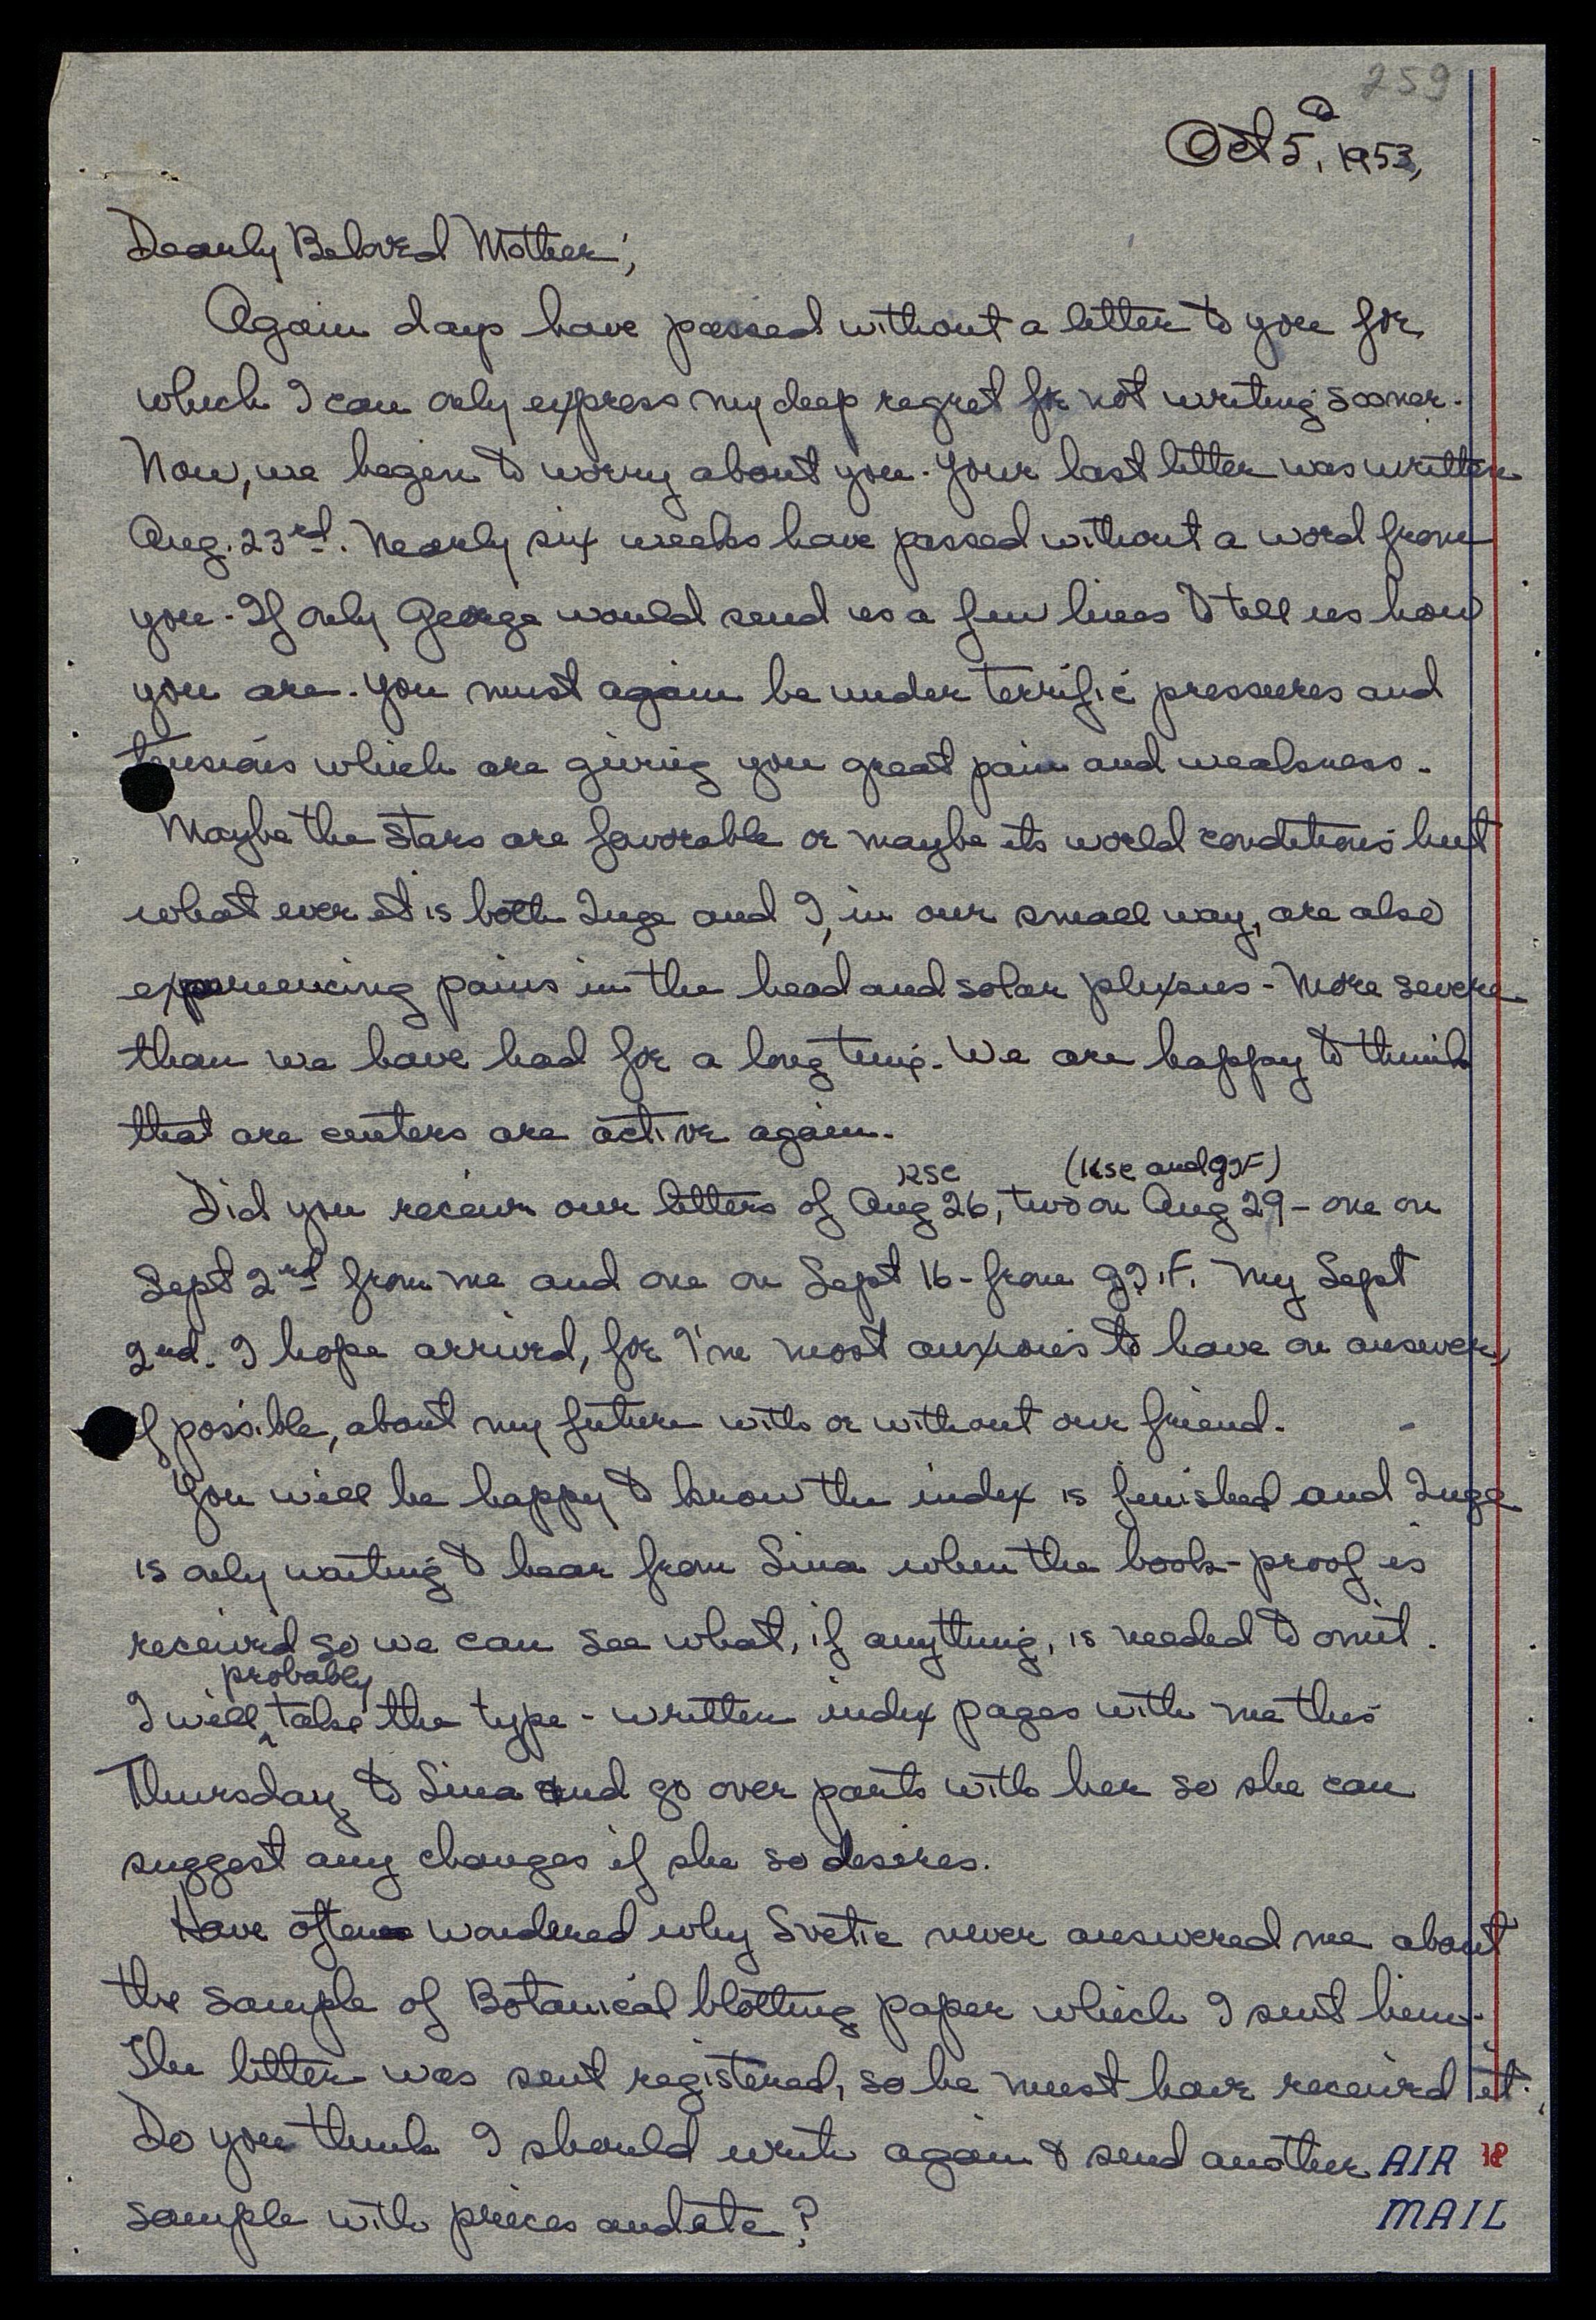 259
Oct 5, 1953,
Dearly Beloved Mother;
Again days have passed without a letter to you for
which I can only express my deep regret for not writing sooner.
Now, we begin to worry about you. Your last letter was written
Aug. 23rd. Nearly six weeks have passed without a word from
you. If only George would send us a few lines to tell us how
you are. You must again be under terrific pressures and
tensions which are giving you great pain and weakness.
Maybe the stars are favorable or maybe its world conditions but
what ever it is both Inge and I, in our small way, are also
experiencing pains in the head and solar plexsus - more severe
than we have had for a long time. We are happy to think
that are centers are active again.
KSC (KSC and GIF)
Did you receive our letters of Aug 26, two on Aug 29 - one on
Sept 2nd from me and one on Sept 16 - from G.I.F. My Sept
2nd. I hope arrived, for I'm most anxious to have an answer,
if possible, about my future with or without our friend.
You will be happy to know the index is finished and Inge
is only waiting to hear from Sina when the book-proof is
received so we can see what, if anything, is needed to omit.
probably
I will ^ take the type-written index pages with me this
Thursday to Sina and go over parts with her so she can
suggest any changes if she so desires.
Have often wondered why Svetic never answered me about
the sample of Botanical blotting paper which I sent him.
The letter was sent registered, so he must have received it.
Do you think I should write again & send another
sample with prices and etc?
AIR
MAIL